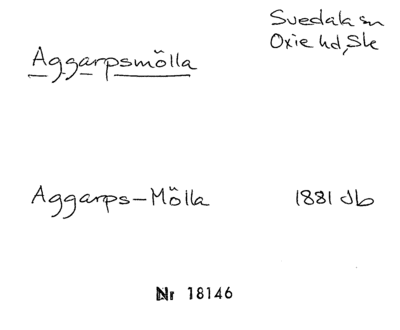 Svedala sn
Oxie hd, Sk
Aggarpsmölla
Aggarps-Mölla 1881 Jb
Nr 18146